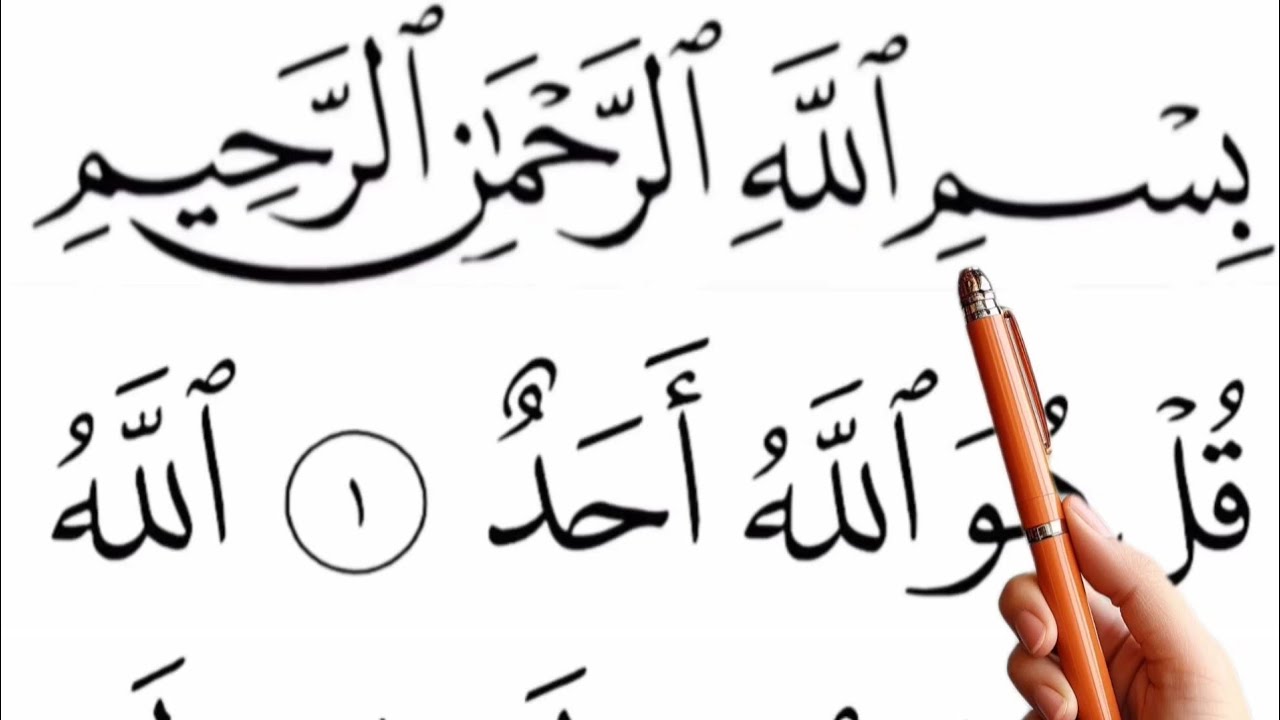 بِسْمِ ٱللَّهِ ٱلرَّحْمَٰنِ ٱلرَّحِيمِ
قُلْ هُوَ ٱللَّهُ أَحَدٌ ١ ٱللَّهُ